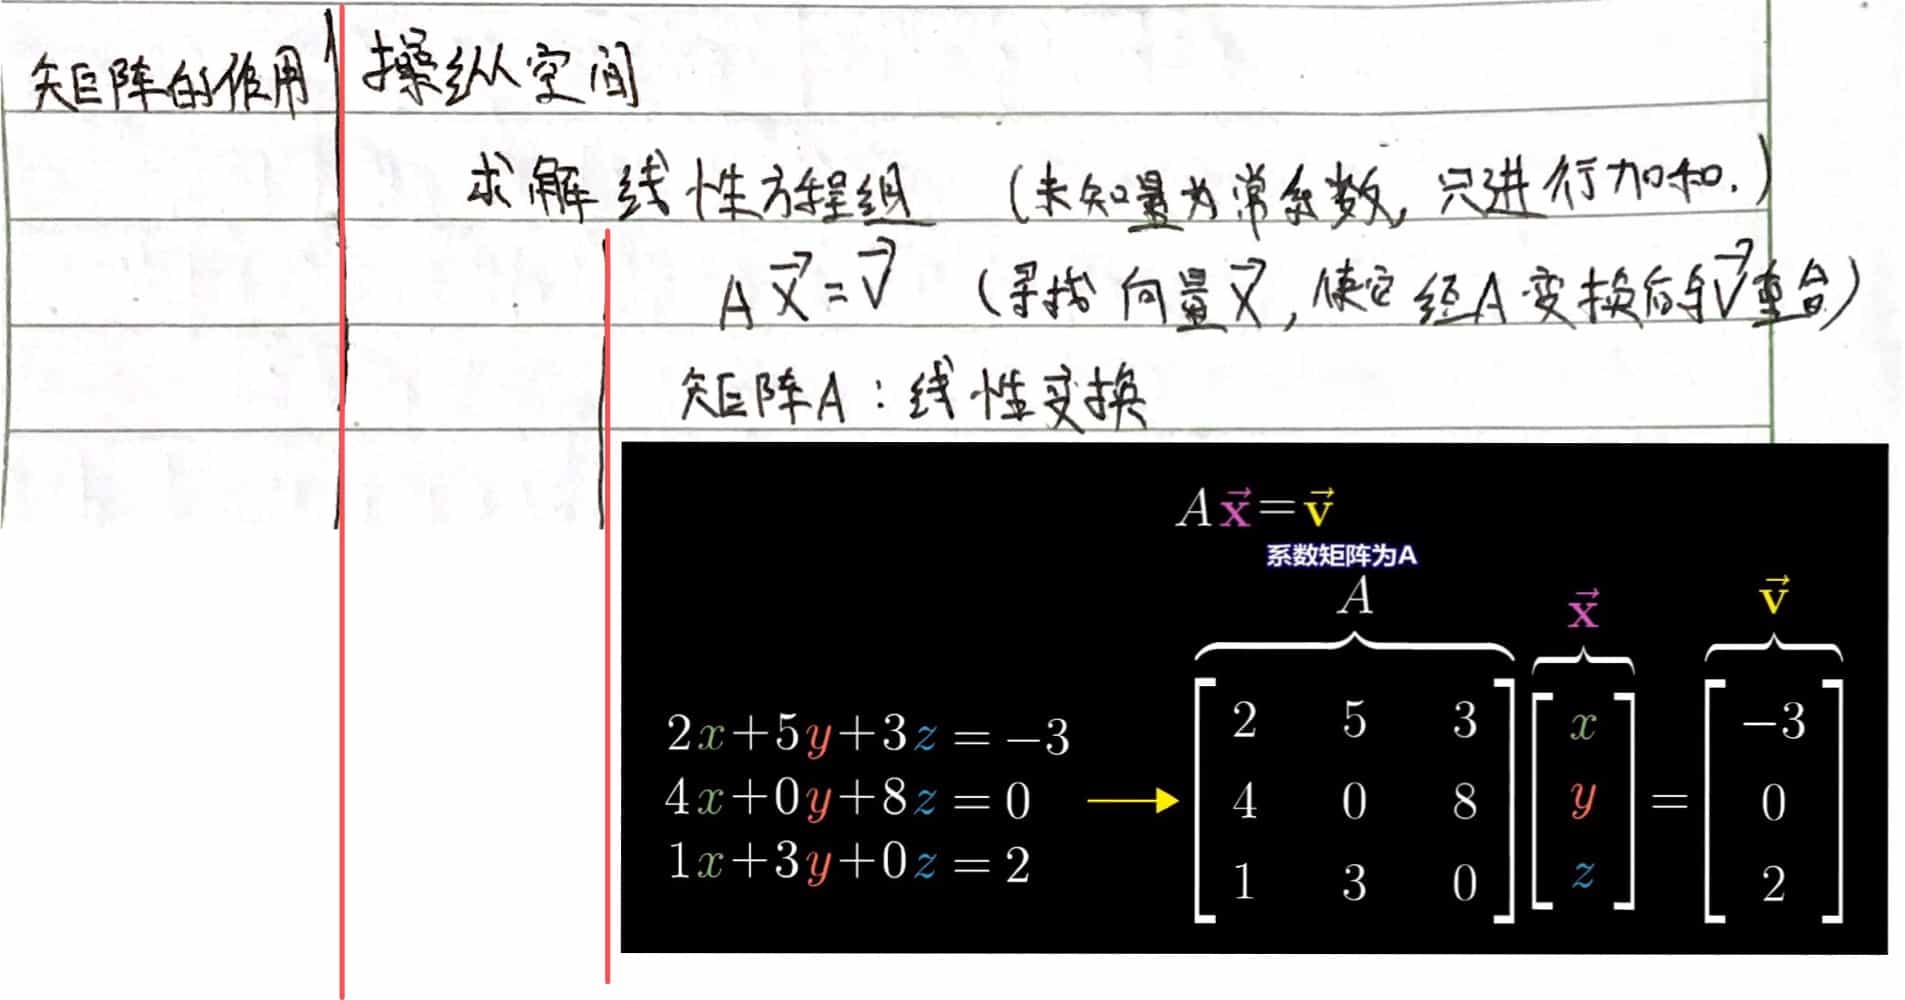 矩阵的作用 操纵空间
求解线性方程组 (未知量为常系数, 只进行加和.)
A x⃗ = v⃗ (寻找向量 x⃗, 使它经A变换后与 v⃗ 重合)
矩阵A: 线性变换
A x⃗ = v⃗
系数矩阵为A
A x⃗ v⃗
2x+5y+3z = −3 → [2 5 3] [x] = [−3]
4x+0y+8z = 0 [4 0 8] [y] [0]
1x+3y+0z = 2 [1 3 0] [z] [2]